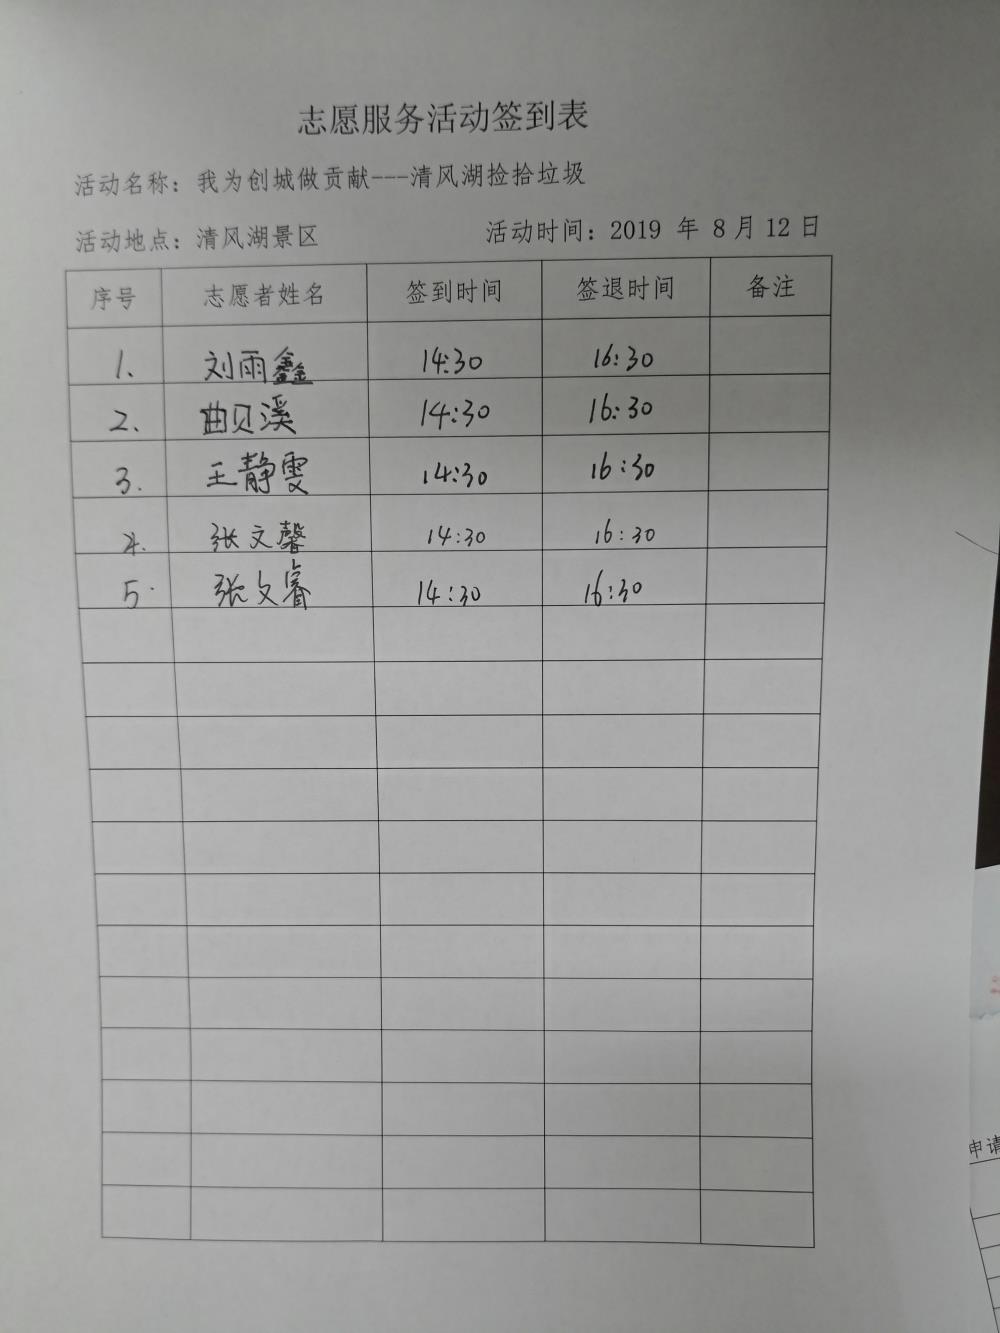 志愿服务活动签到表
活动名称：我为创城做贡献---清风湖捡拾垃圾
活动地点：清风湖景区 活动时间：2019 年 8 月 12 日
序号 志愿者姓名 签到时间 签退时间 备注
1. 刘雨鑫 14:30 16:30
2. 曲贝溪 14:30 16:30
3. 王静雯 14:30 16:30
4. 张文馨 14:30 16:30
5. 张文睿 14:30 16:30
申请